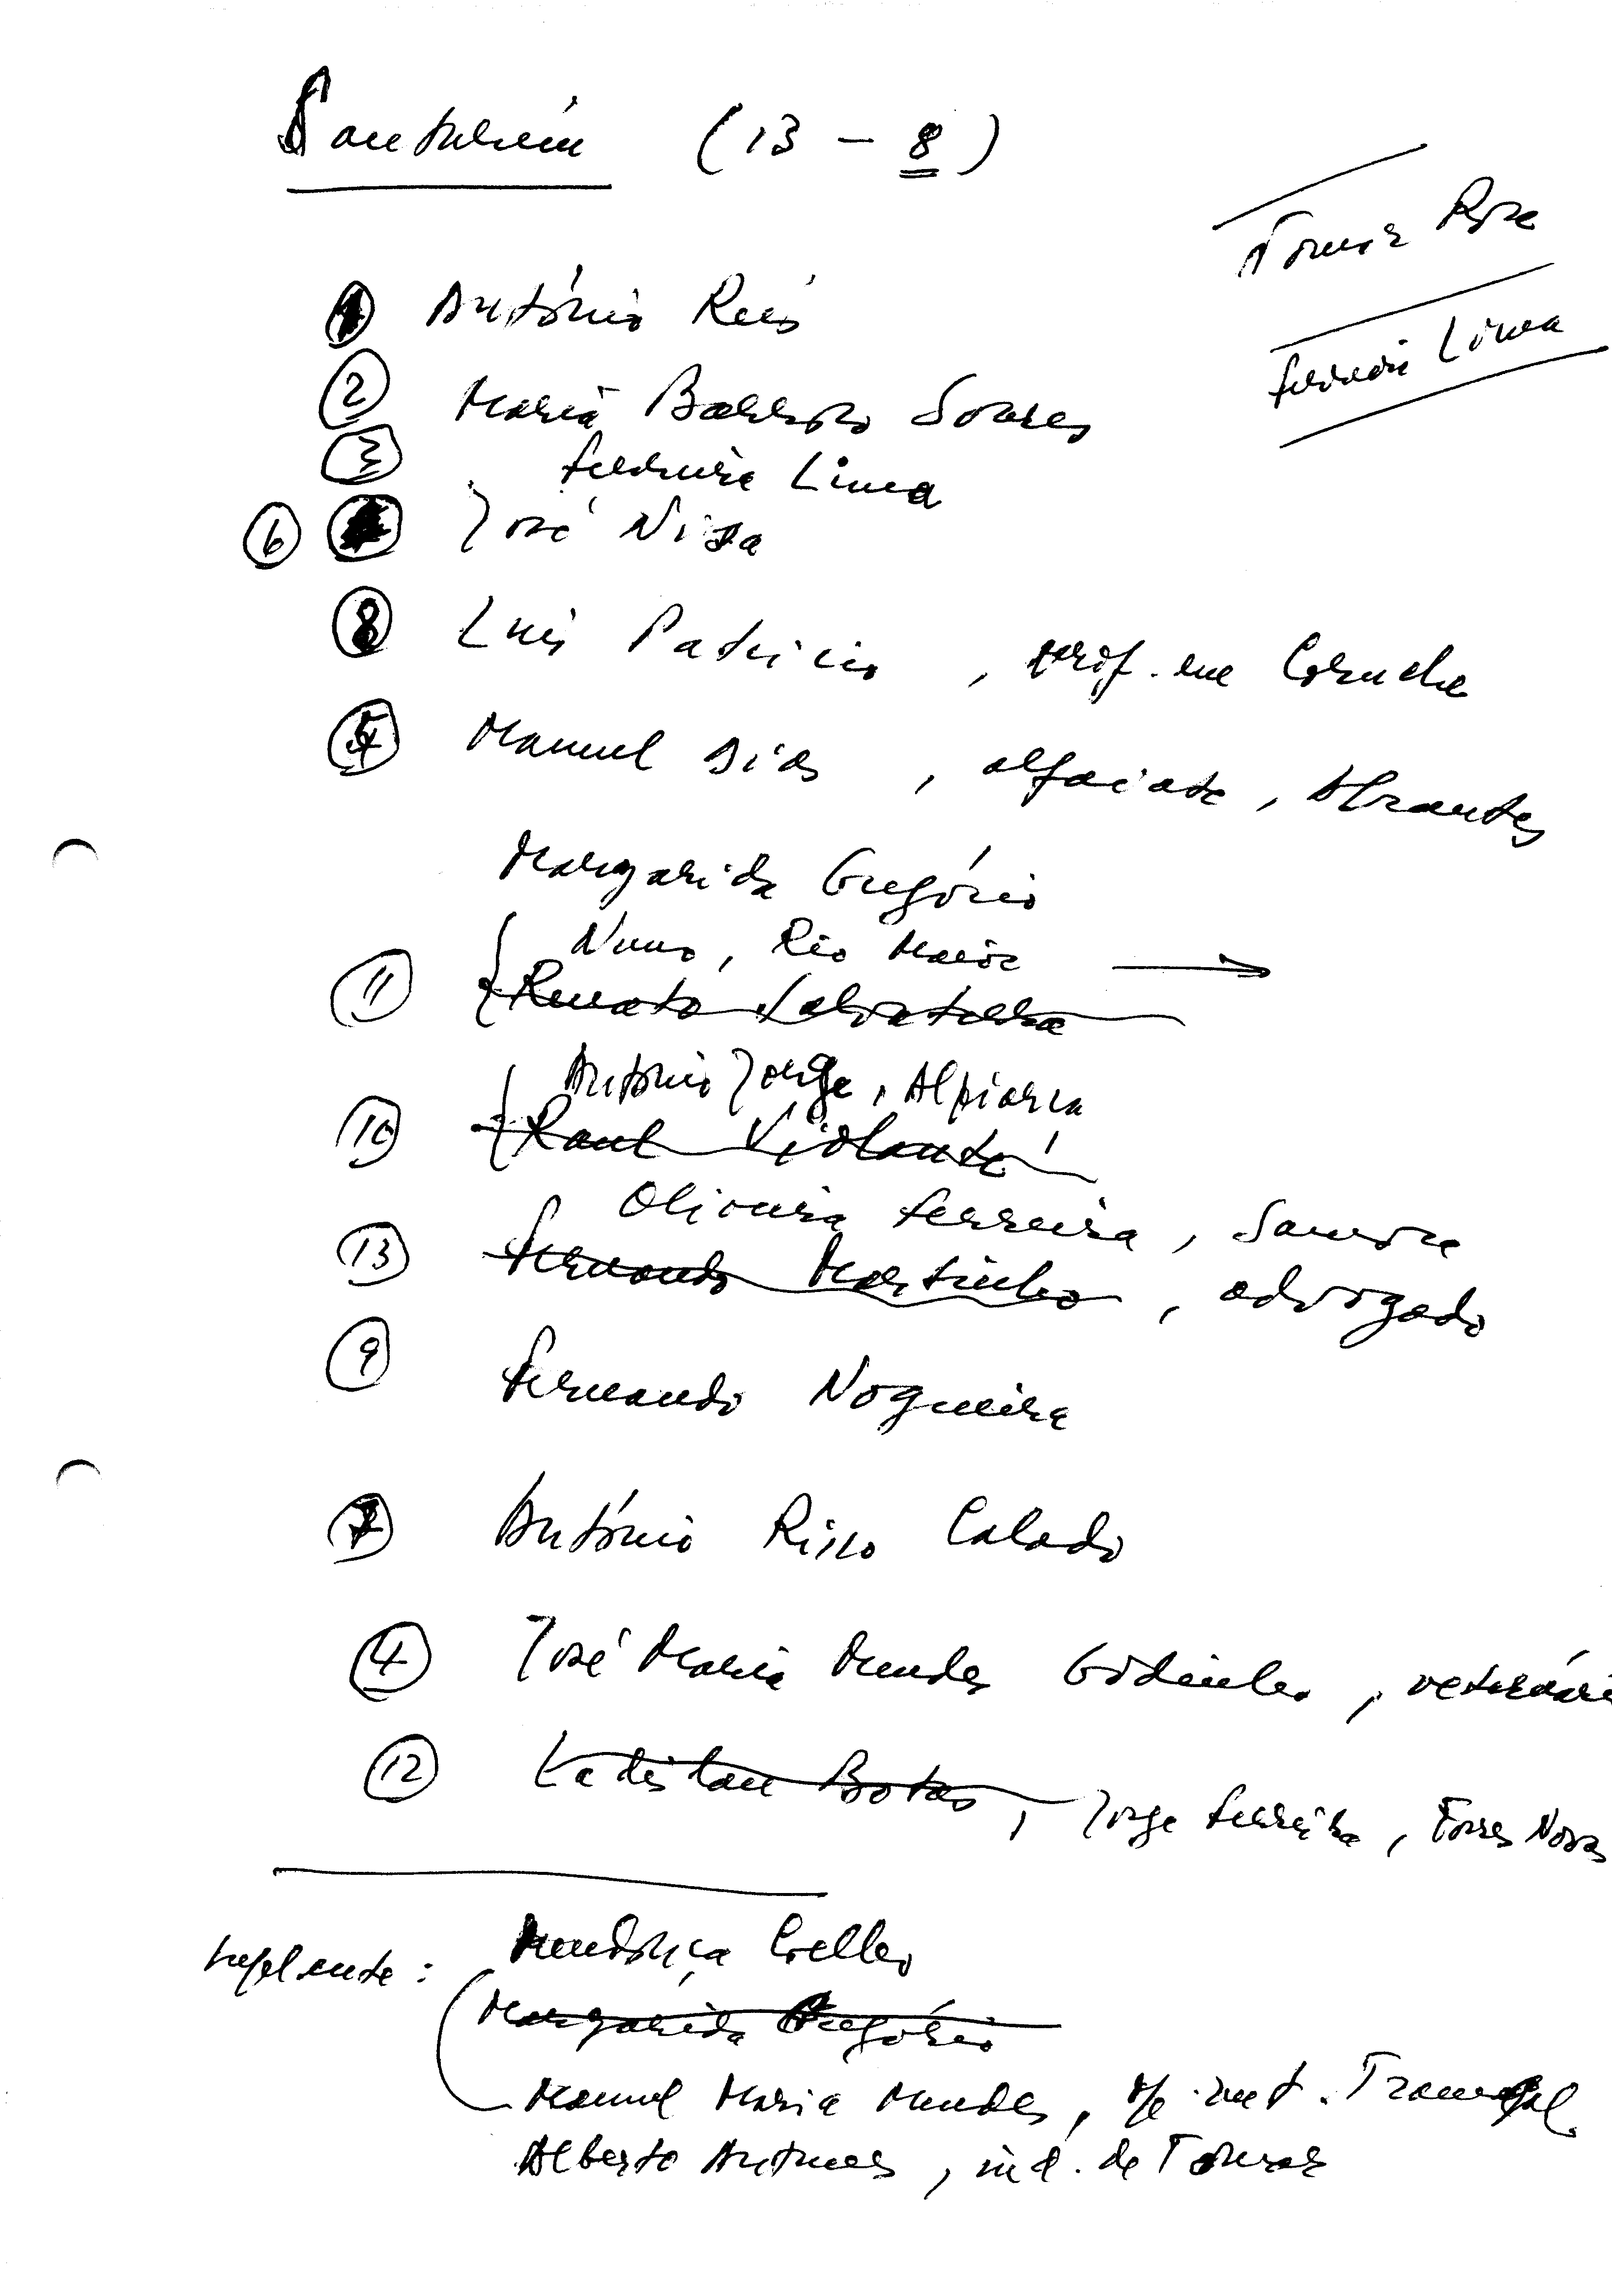 Santarém (13 – 8)
Tomar Rosa
Ferreira Lima
1 António Reis
2 Maria Barroso Soares
3 Ferreira Lima
6 José Niza
8 Luís Patrício, prof. em Coruche
5 Manuel Dias, alfaiate, Abrantes
Margarida Gregório
Nuno, Rio Maior →
11 Renato
António Jorge, Alpiarça
10 Raul Violante
Oliveira Ferreira, Samora
13 Fernando Martinho, advogado
9 Fernando Nogueira
7 António Risso Calado
4 José Maria Mendes Godinho, veterinári
12 Ladislau Botas, Jorge Ferreira, Torres Novas
suplente: Mendonça Coelho
Margarida Gregório
Manuel Maria Mendes, op. met. Tramagal
Alberto Antunes, ind. de Tomar